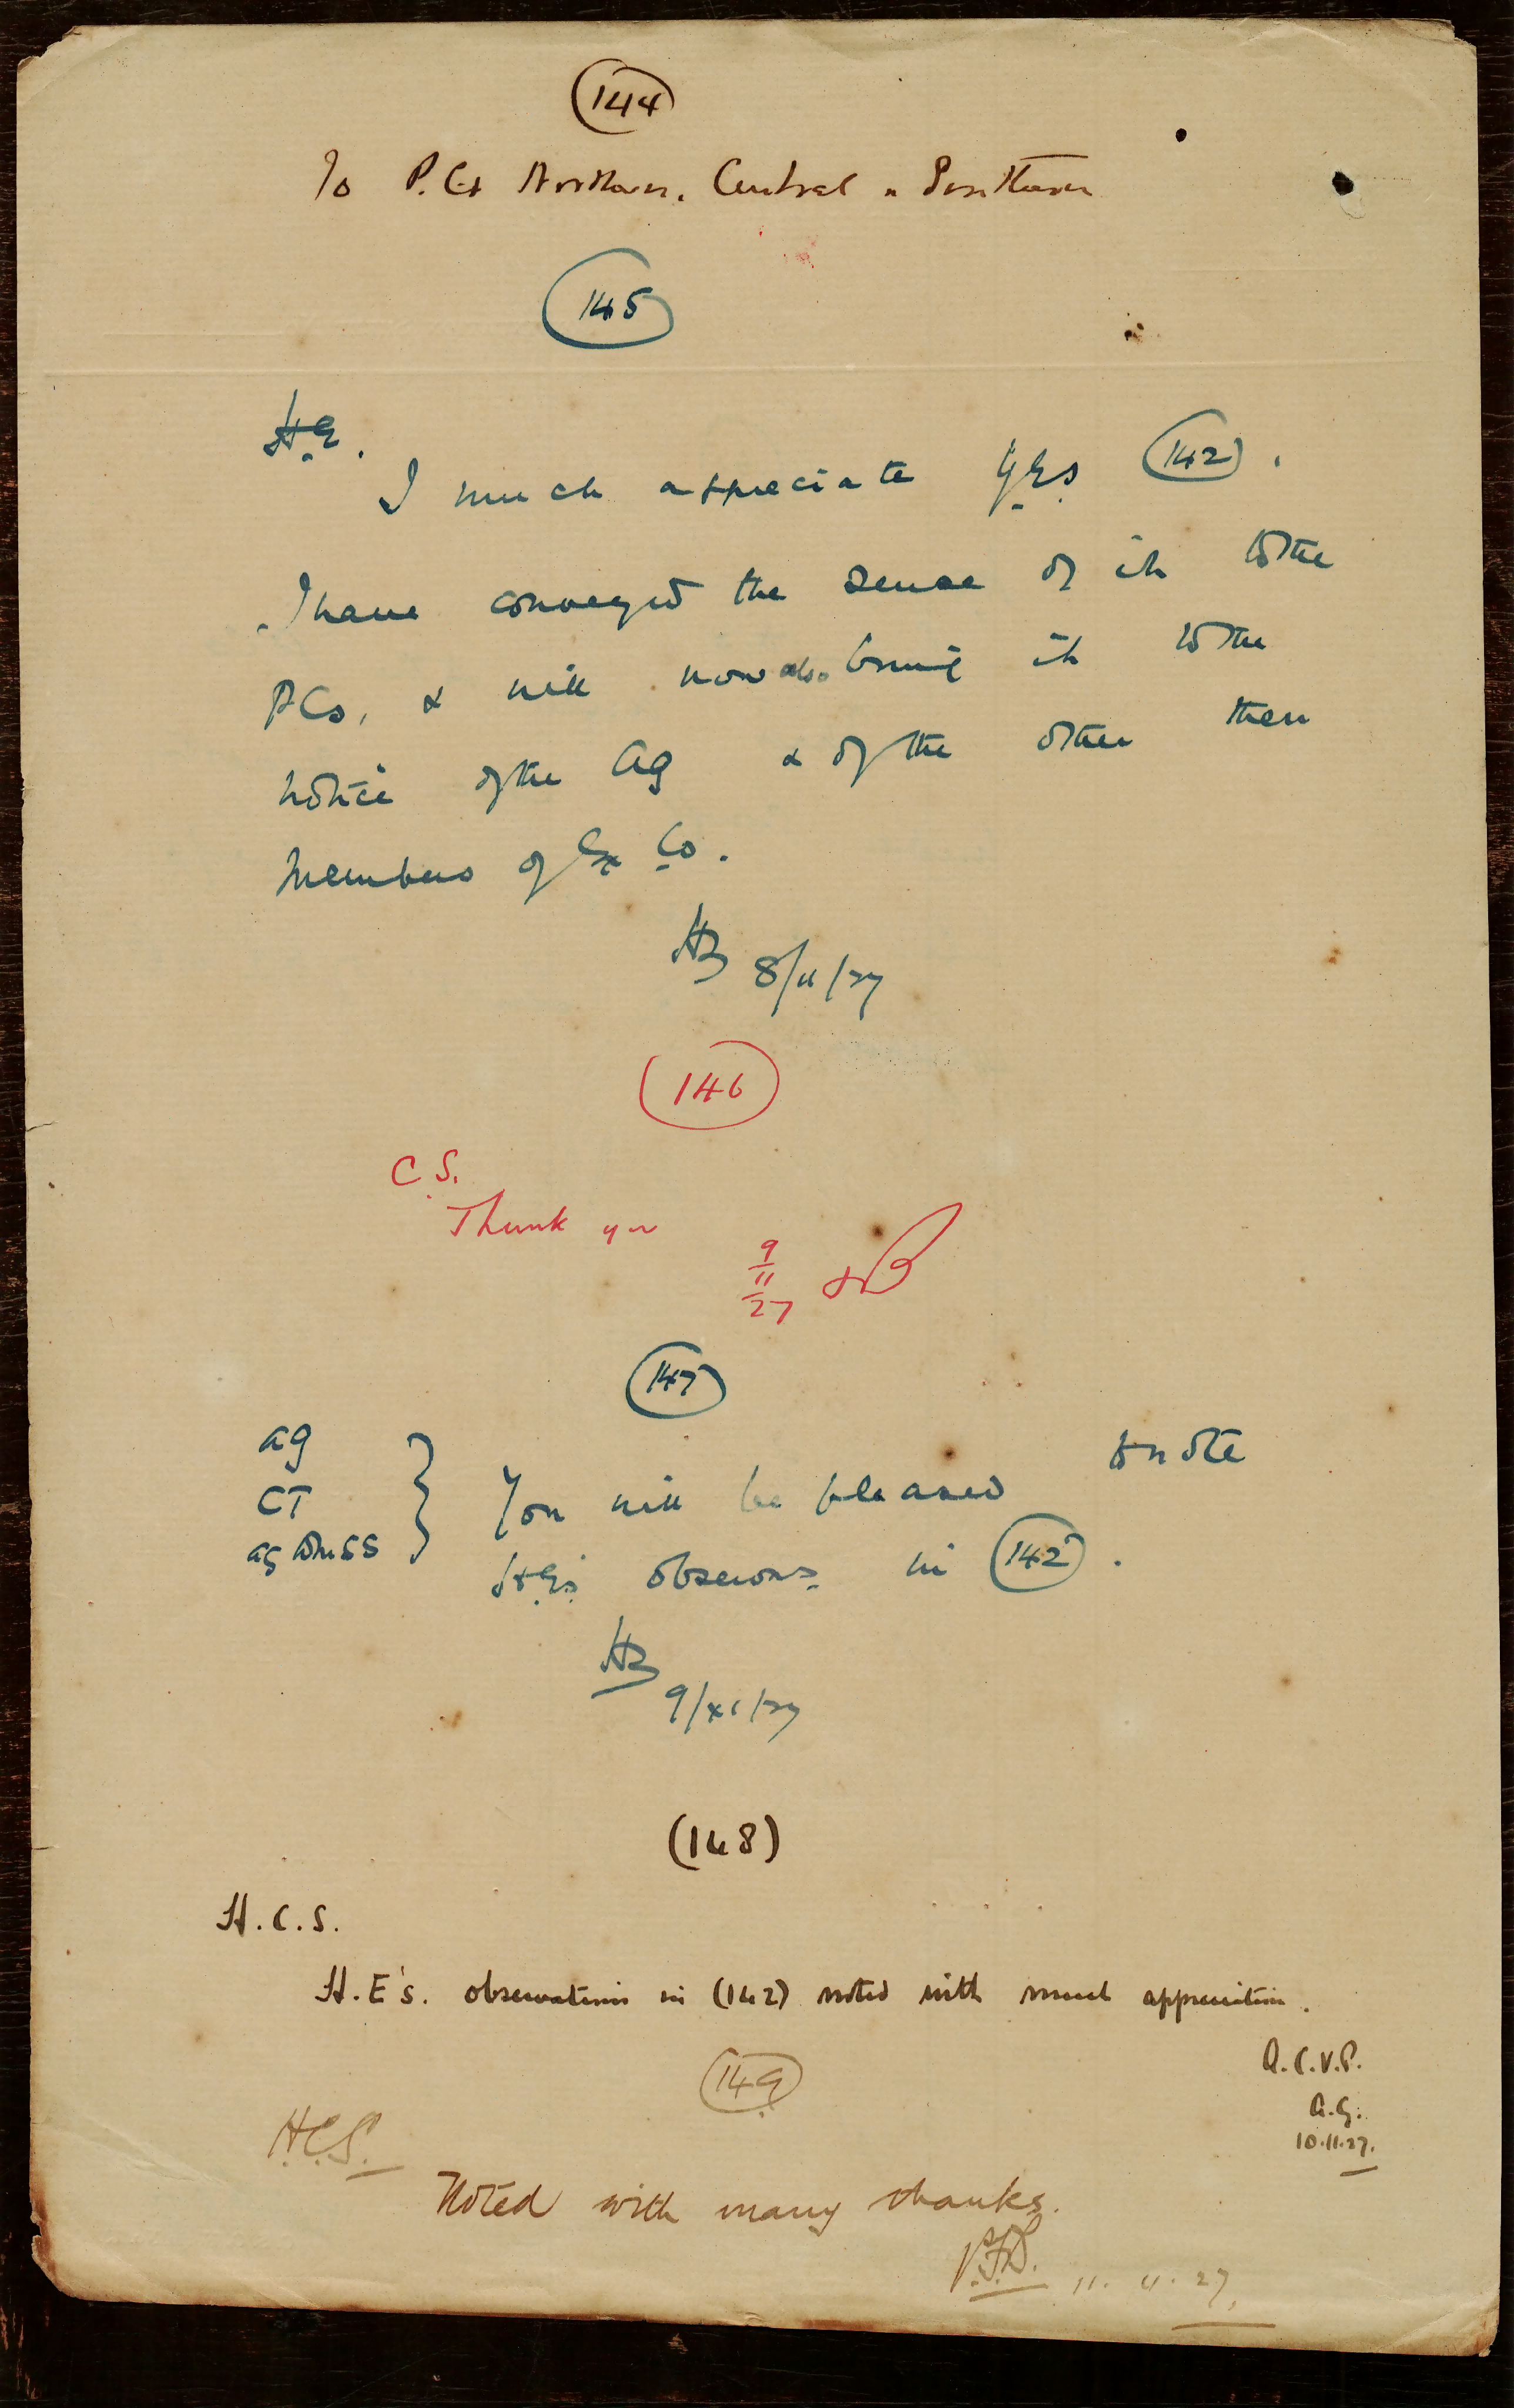 144
To P.Cs Northern, Central & Southern
145
H.E.
I much appreciate YEs 142.
I have conveyed the sense of it to the
PCs, & will now also bring it to the
notice of the AG & of the other then
members of Ex Co.
HB 8/11/27
146
C.S.
Thank you
9/11/27
147
AG
CT
You will be pleased to note
HE's observons in 142.
HB
9/xi/27
(148)
H.C.S.
H.E's. observations in (142) noted with much appreciation.
A.C.V.P.
A.G.
10.11.27.
149
H.C.S.
Noted with many thanks.
11.11.27.